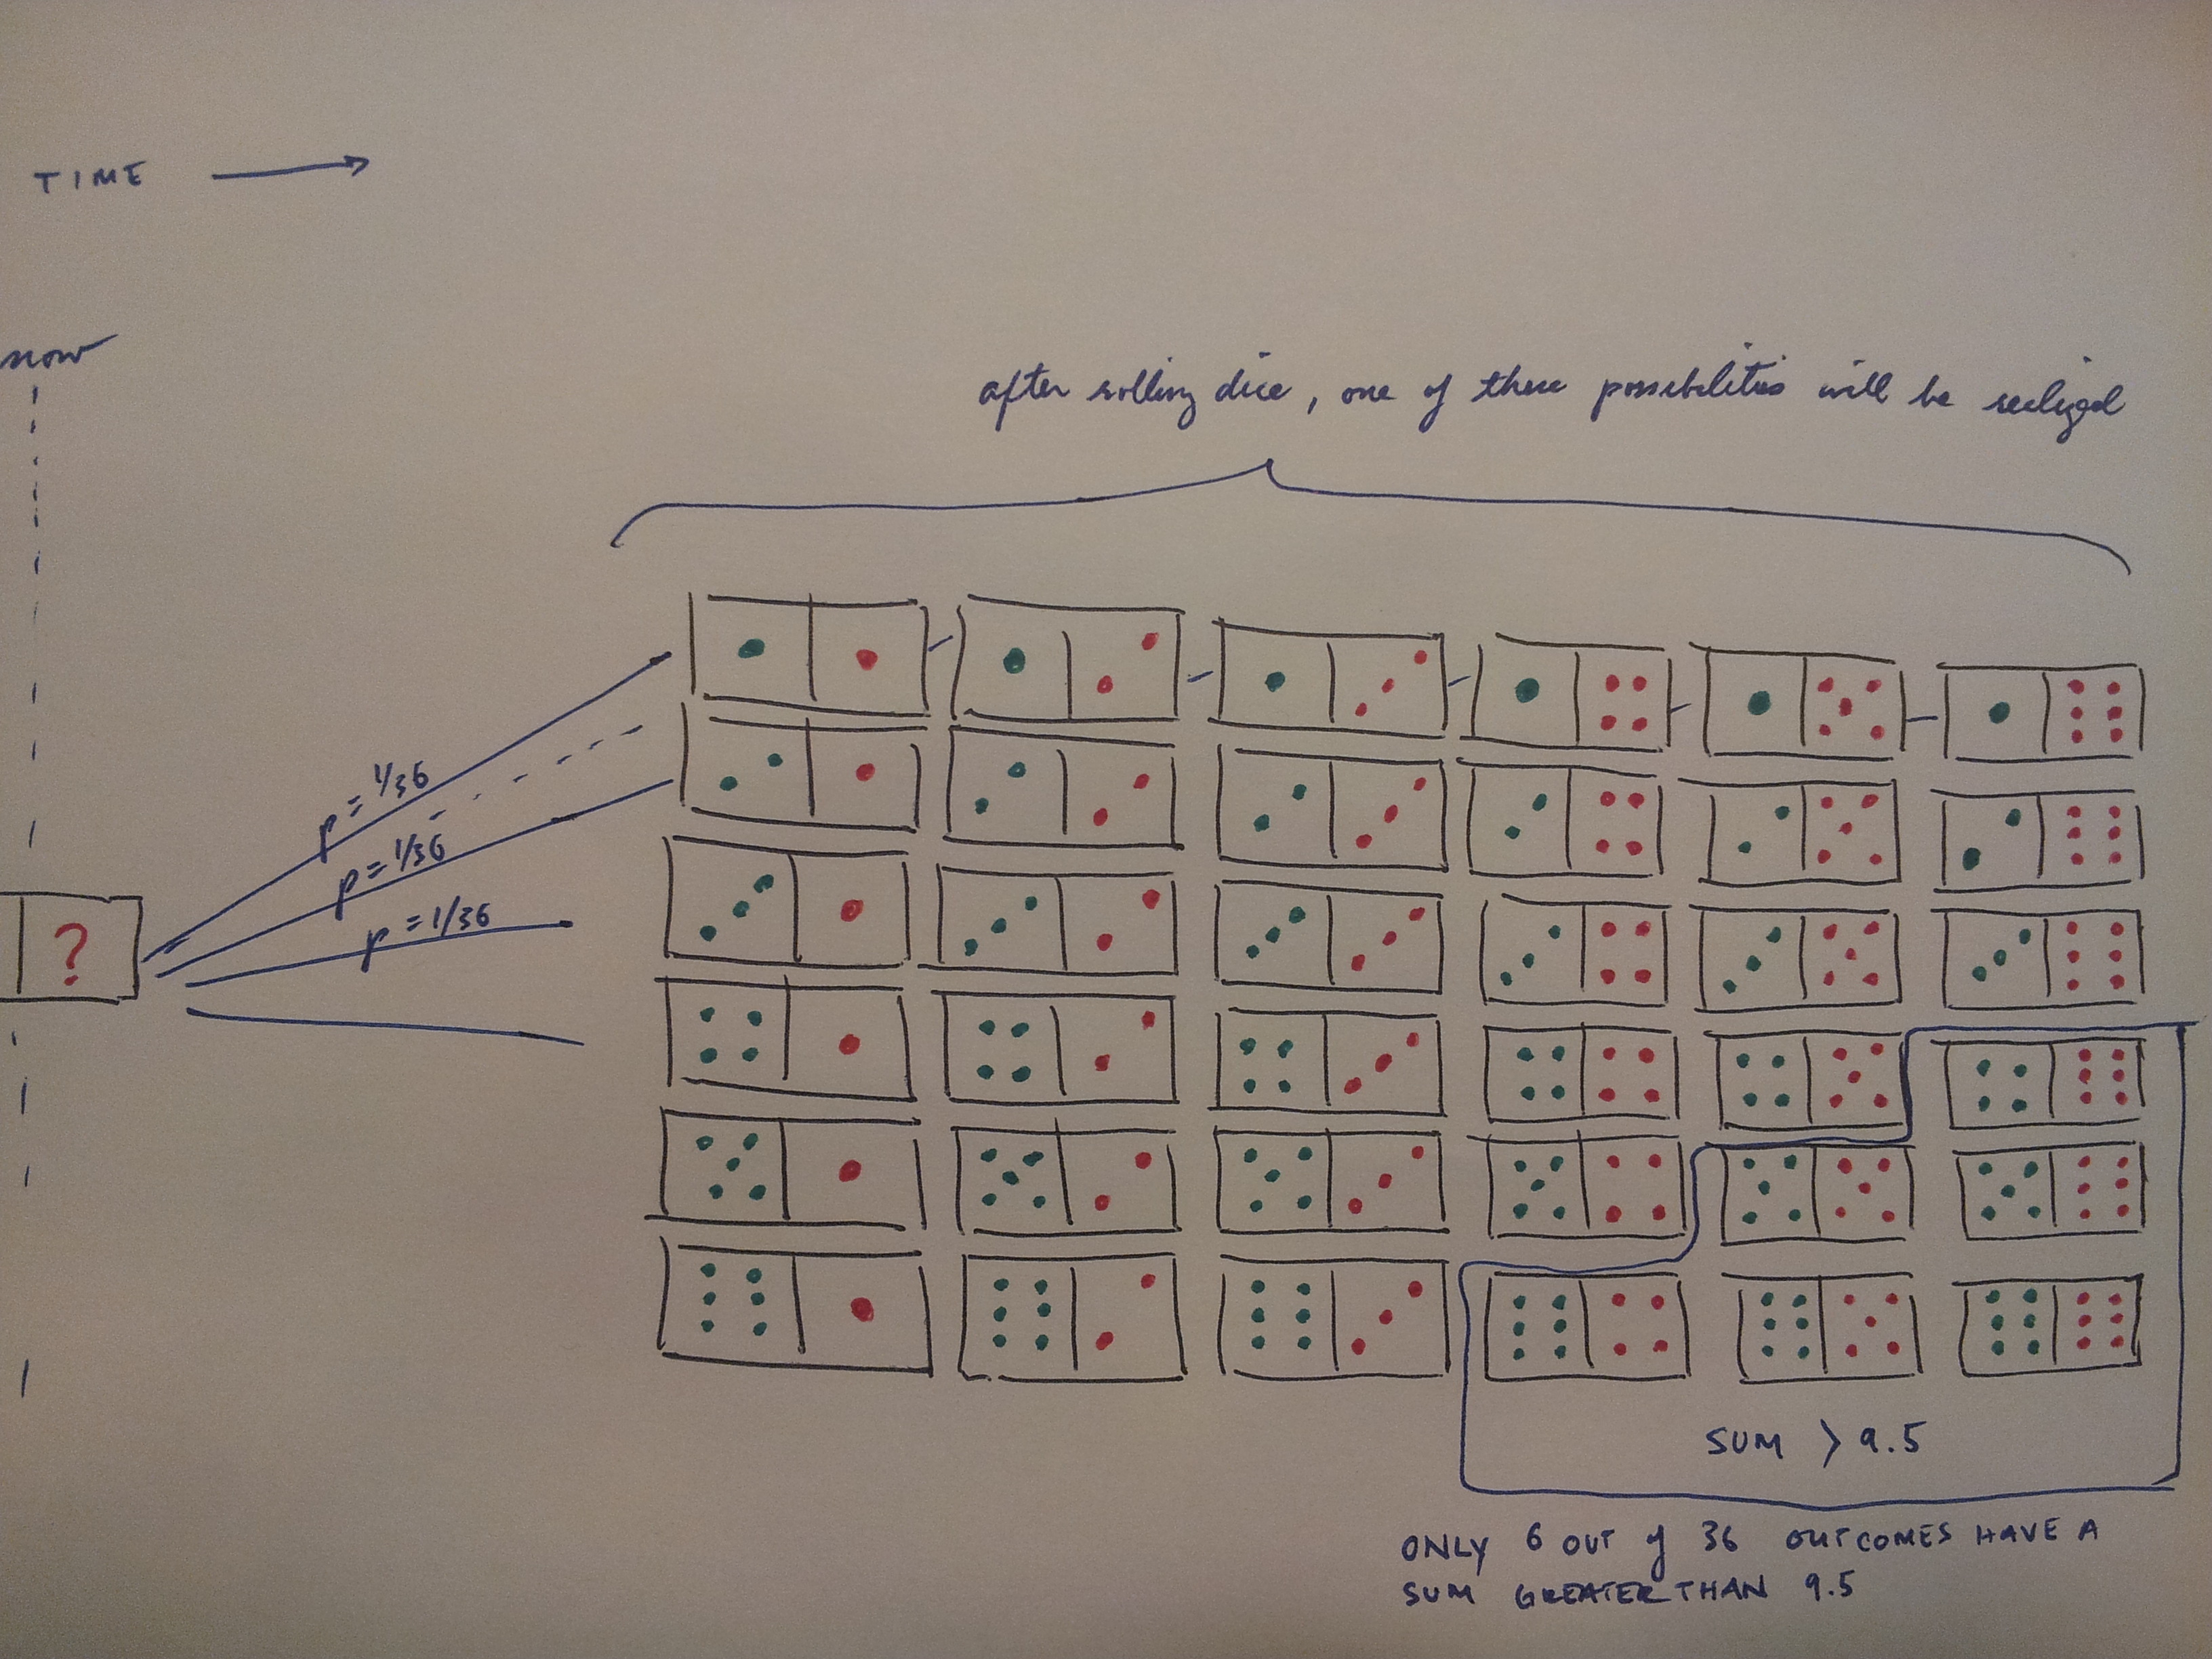 TIME
now
after rolling dice, one of these possibilities will be realized
p = 1/36
p = 1/36
p = 1/36
?
SUM > 9.5
ONLY 6 OUT of 36 OUTCOMES HAVE A
SUM GREATER THAN 9.5